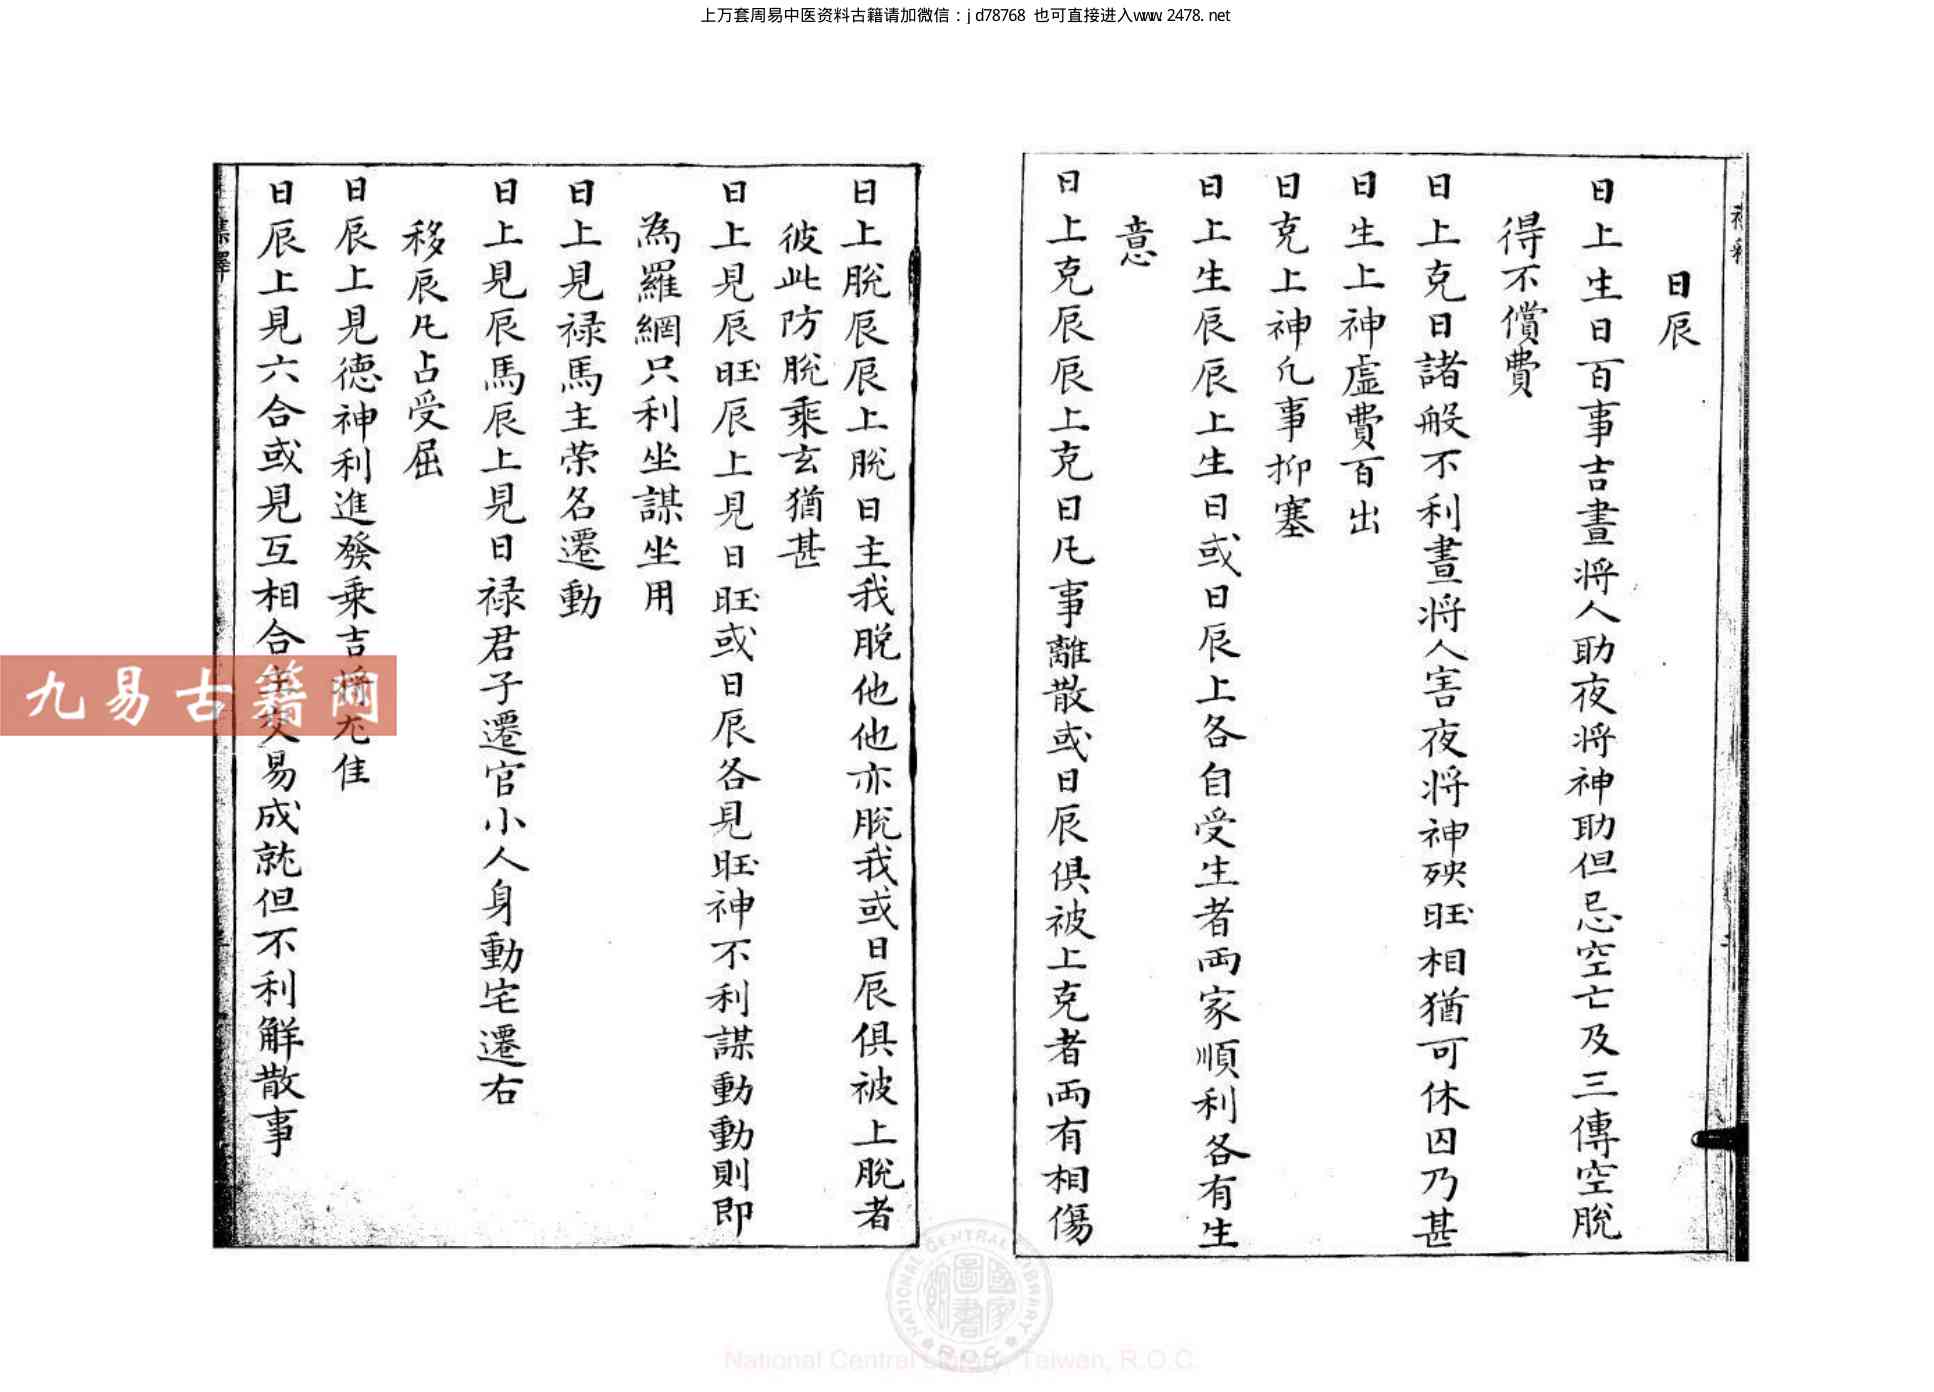 上万套周易中医资料古籍请加微信：jd78768 也可直接进入www.2478.net
日辰
日上生日百事吉晝將人助夜將神助但忌空亡及三傳空脫
得不償費
日上克日諸般不利晝將人害夜將神殃旺相猶可休囚乃甚
日生上神虛費百出
日克上神凡事抑塞
日上生辰辰上生日或日辰上各自受生者両家順利各有生
意
日上克辰辰上克日凡事離散或日辰俱被上克者両有相傷
日上脫辰辰上脫日主我脫他他亦脫我或日辰俱被上脫者
彼此防脫乘玄猶甚
日上見辰旺辰上見日旺或日辰各見旺神不利謀動動則即
為羅網只利坐謀坐用
日上見禄馬主荣名遷動
日上見辰馬辰上見日禄君子遷官小人身動宅遷右
移辰凡占受屈
日辰上見德神利進發乗吉將尤佳
日辰上見六合或見互相合主交易成就但不利解散事
九易古籍网
NATIONAL CENTRAL LIBRARY
R.O.C.
國家圖書館
National Central Library, Taiwan, R.O.C.